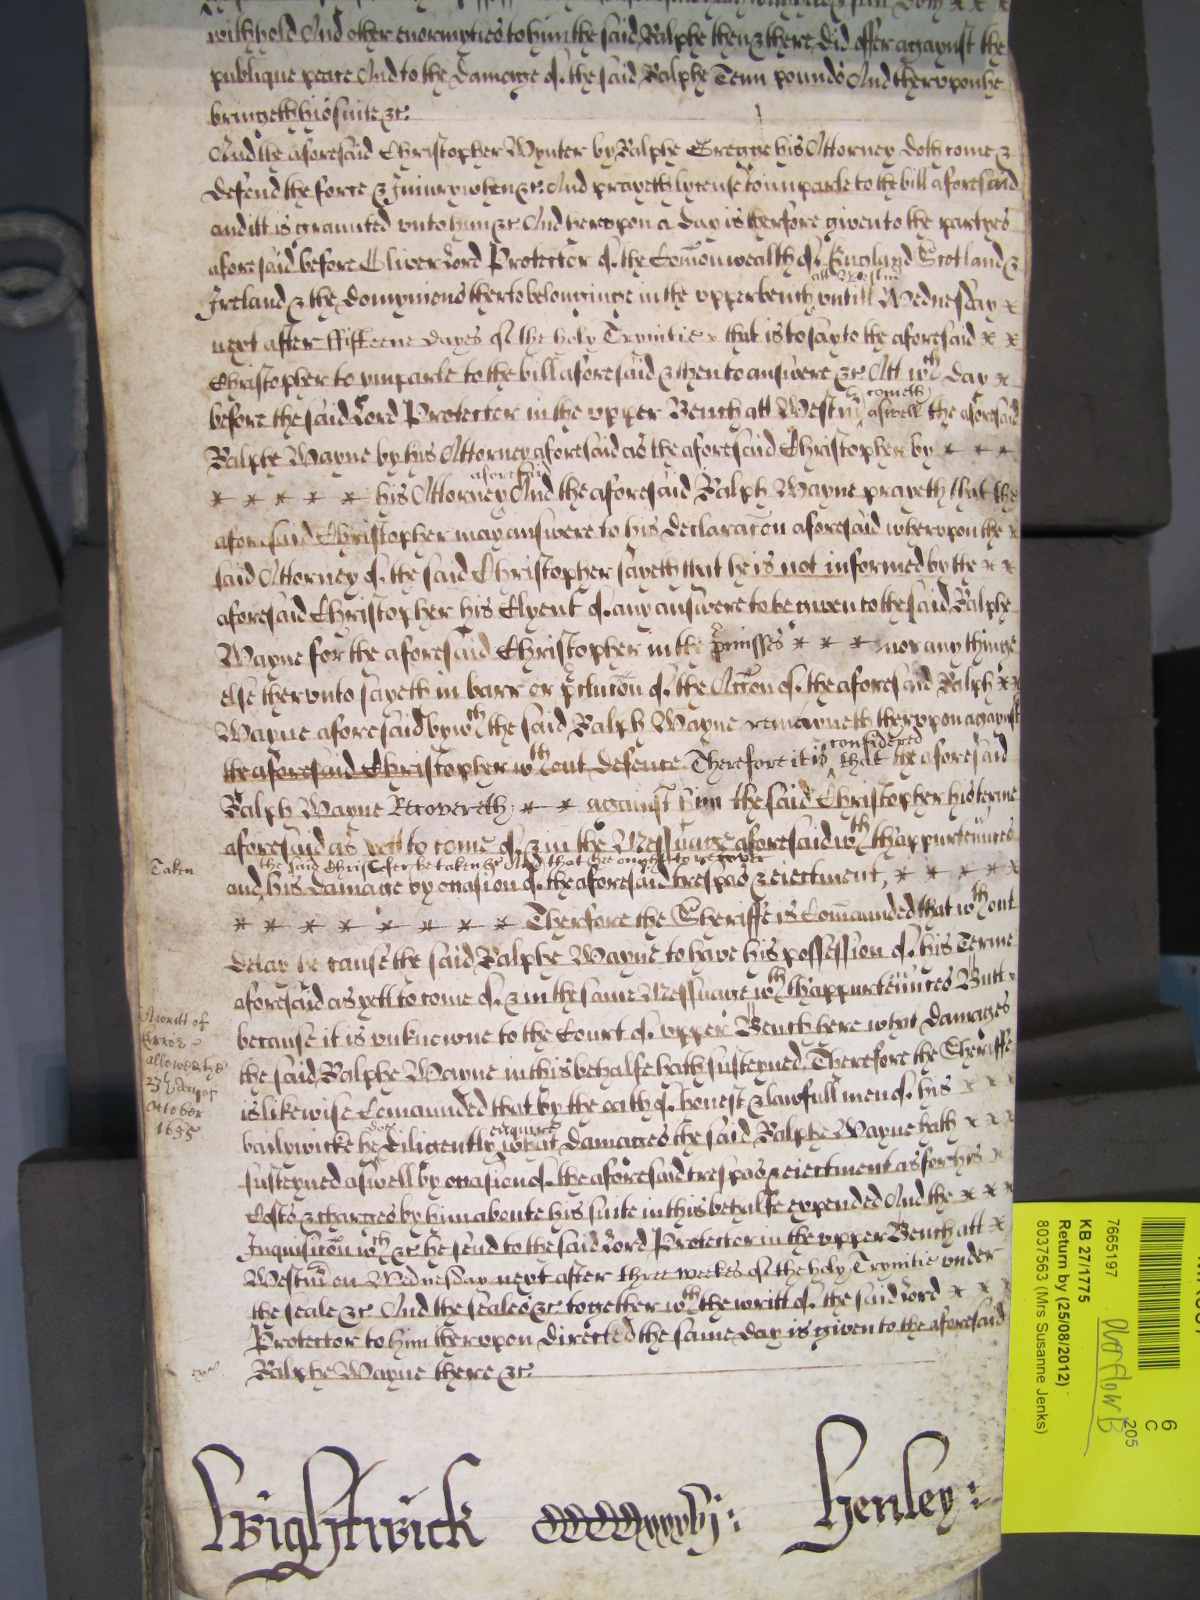 withhold And other enormyties to him the said Ralphe then & there did offer against the
publique peace And to the damage of the said Ralphe Tenn pounds And therupon he
bringeth his suite &c
And the aforesaid Christopher Wynter by Ralphe Gregge his Attorney doth come &
defend the force & Iniury when &c And prayeth lycense to imparle to the bill aforesaid
and itt is graunted unto him &c And hereupon a day is therfore given to the partyes
aforesaid before Oliver Lord Protector of the Comonwealth of England Scotland &
Ireland & the domynions therto belonginge in the upper bench att Westm untill Wednesday x
next after fifteene dayes of the holy Trynitie x that is to say to the aforesaid x x
Christopher to imparle to the bill aforesaid & then to answere &c Att wch day x
before the said Lord Protector in the upper Bench att Westm cometh aswell the aforesaid
Ralphe Mayne by his Attorney aforesaid as the aforesaid Christopher by x x x
x x x x x his Attorney aforesaid And the aforesaid Ralph Mayne prayeth that the
aforesaid Christopher may answere to his declaracon aforesaid wherupon the x
said Attorney of the said Christopher sayeth that he is not informed by the x x
aforesaid Christopher his Clyent of any answere to be given to the said Ralphe
Mayne for the aforesaid Christopher in the pmisses x x x nor any thinge
else therunto sayeth in barr or pclucon of the Accon of the aforesaid Ralph x x
Mayne aforesaid by wch the said Ralph Mayne remayneth therupon against
the aforesaid Christopher wthout defence Therefore it is considered that the aforesaid
Ralph Mayne Recovereth x x against him the said Christopher his terme
aforesaid as yett to come of & in the Messuage aforesaid wth thappurtennces
Taken
the said Christofer be taken &c And that he ought to recover
and his damage by occasion of the aforesaid trespas & eiectment, x x x x x
x x x x x x x x Therfore the Sheriffe is Comaunded that wthout
delay he cause the said Ralphe Mayne to have his possession of his Terme
aforesaid as yett to come of & in the same Messuage wth thappurtennces Butt x
because it is unknowne to the Court of upper Bench here what damages
the said Ralphe Mayne in this behalfe hath susteyned, Therefore the Sheriffe
is likewise Comaunded that by the oath of honest & lawfull men of his x x x
A writt of
Error
allowed the
23th day of
October
1655
bailywicke he doe diligently enquire what damages the said Ralphe Mayne hath x x x
susteyned aswell by occasion of the aforesaid trespas & eiectment as for his x
Costs & charges by him aboute his suite in this behalfe expended And the x x x
Inquisicon wch &c he send to the said Lord Protector in the upper Bench att x
Westm on Wednesday next after three weekes of the holy Trynitie under
the seale &c And the seales &c together wth the writt of the said Lord x x x
Protector to him therupon directed the same day is given to the aforesaid
Ralphe Mayne there &c
Wightwick
Henley:
7665197
KB 27/1775
Return by (25/08/2012)
8037563 (Mrs Susanne Jenks)
Overflow B
6
C
205